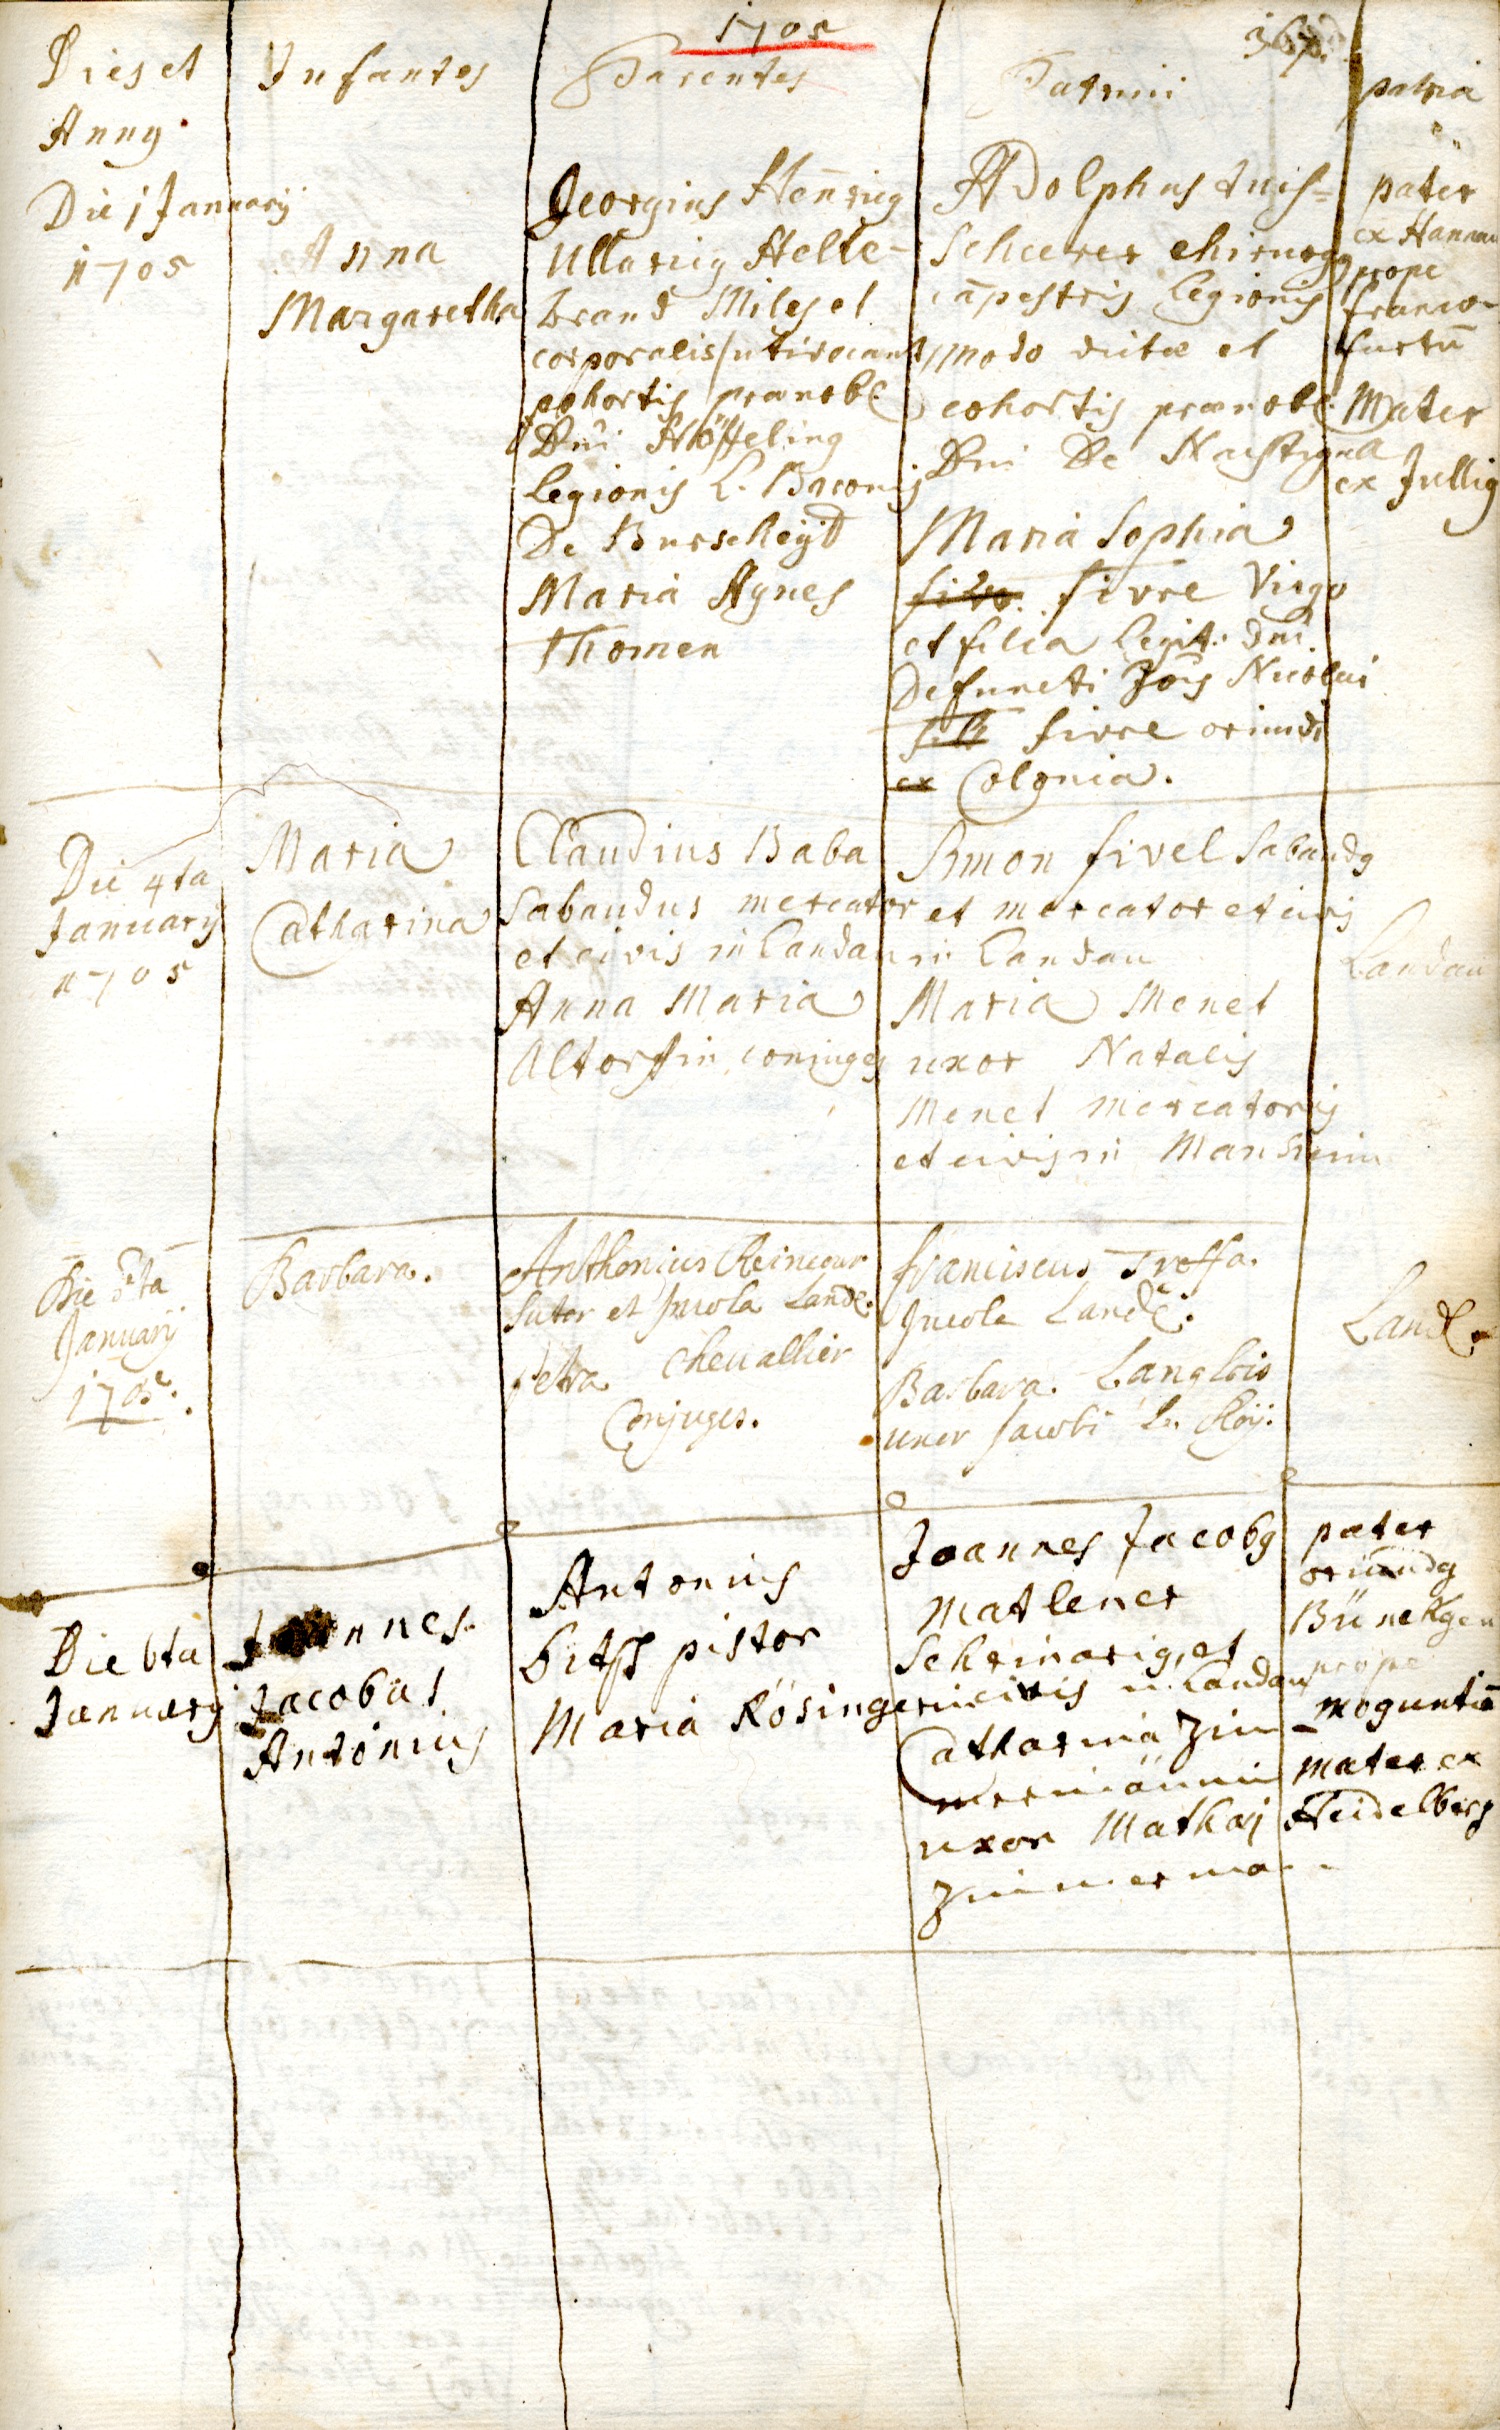 1705
367.
Dies et
Anny
Infantes
Parentes
Patrini
patria
Die 1 Januarij
1705
Anna
Margaretha
Georgius Henricg
Ullaricg Helle-
brand Miles et
corporalis/uti vocant/
cohortis prænobl
Dni Höffeling
legionis L. Baronis
De Burscheyd
Maria Agnes
Thomen
Adolphus
Scheerer chirurgg
capestris legionis
modo dictæ et
cohortis prænobl.
Dni De
Maria Sophia
fivre Virgo
et filia legit: dni
Defuncti Jois Nicolai
fivre oriundi
ex Colonia.
pater
ex Hannau
prope
franco-
furtū
Mater
ex Jullig
Die 4ta
January
1705
Maria
Catharina
Claudius Baba
Sabaudus mercator
et civis in Landau
Anna Maria
Altorffin conjuges
Simon fivel Sabaudg
et mercator et civis
in Landau
Maria Menet
uxor Natalis
Menet mercatoris
et civis in Manheim
Landau
Die 5ta
Januarij
1705.
Barbara.
Anthonius
Sutor et Incola Land:
Petra Chevallier
Conjuges.
franciscus Troffa.
Incola Land:
Barbara Langlois
uxor Jacobi Le Roy.
Land:
Die 6ta
January
Joannes
Jacobus
Antonius
Antonius
pistor
Maria Rösingerin
Joannes Jacobg
Matlener
Schrinarig, et
civis in Landau
Catharina Zim
mermännin
uxor Mathæi
Zimmerman
pater
oriundg
prope
moguntiā
mater ex
Heidelberg